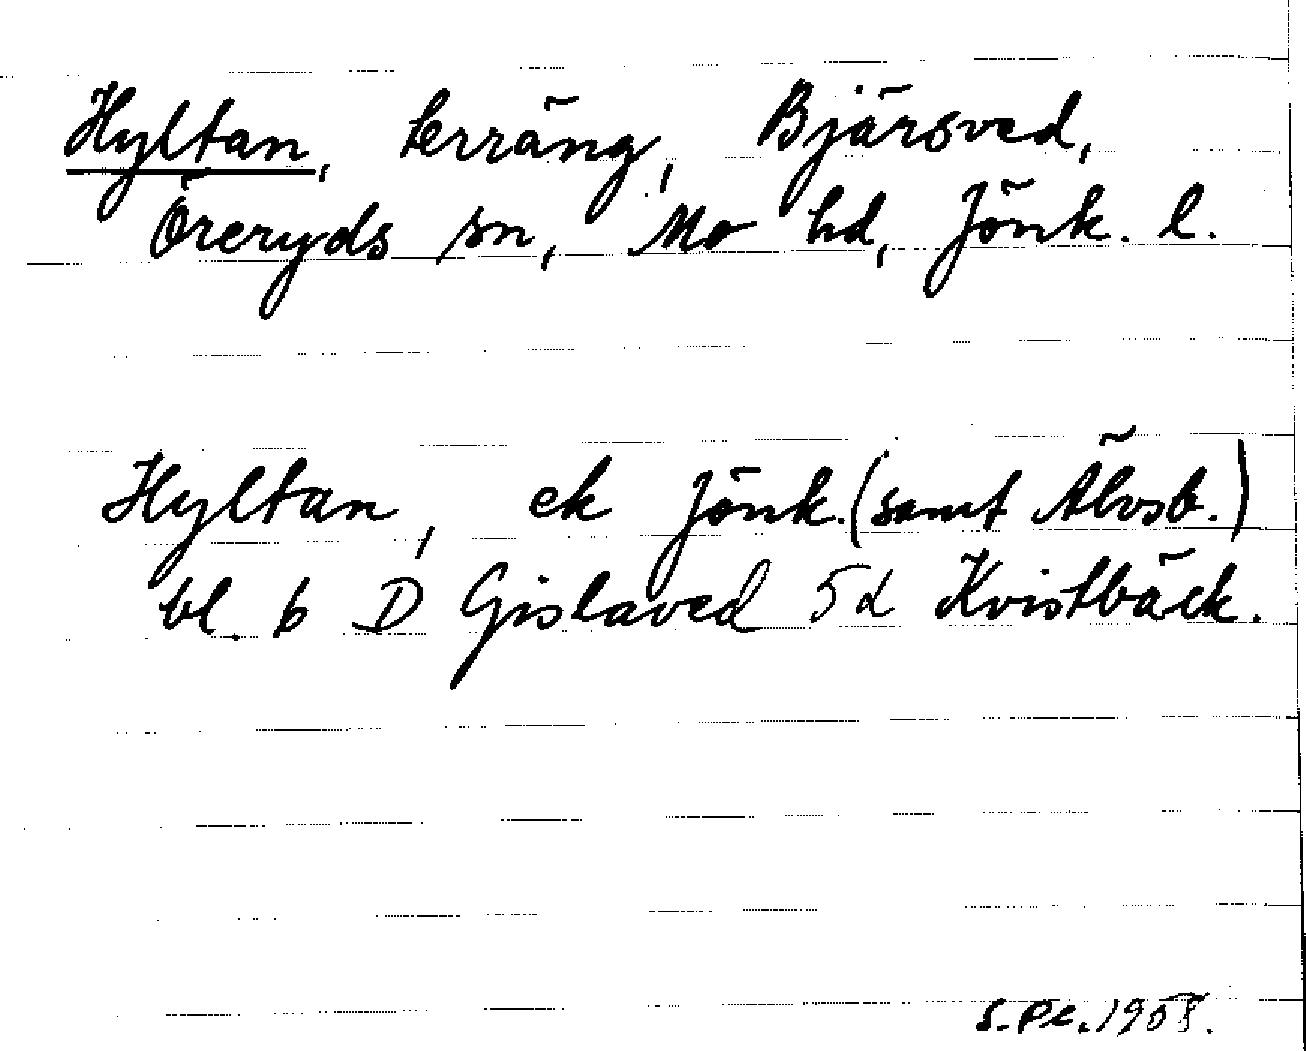 Hyltan, terräng, Bjärsved,
Öreryds sn, Mo hd, Jönk. l.
Hyltan, ek Jönk. (samt Älvsb.)
bl. 6 D Gislaved 5d Kvistbäck.
S.Pe.